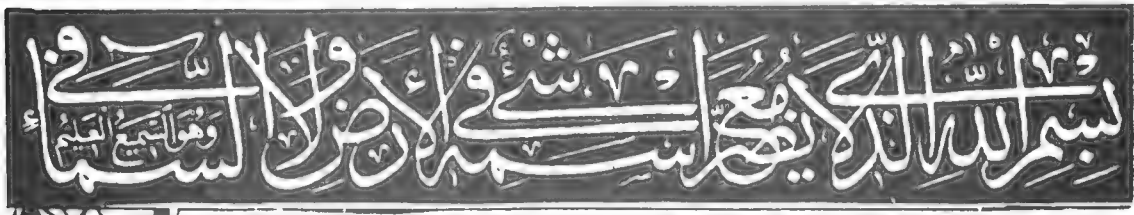 بِسْمِ اللهِ الَّذِي لَا يَضُرُّ مَعَ اسْمِهِ شَيْءٌ فِي الْأَرْضِ وَلَا فِي السَّمَاءِ وَهُوَ السَّمِيعُ الْعَلِيمُ